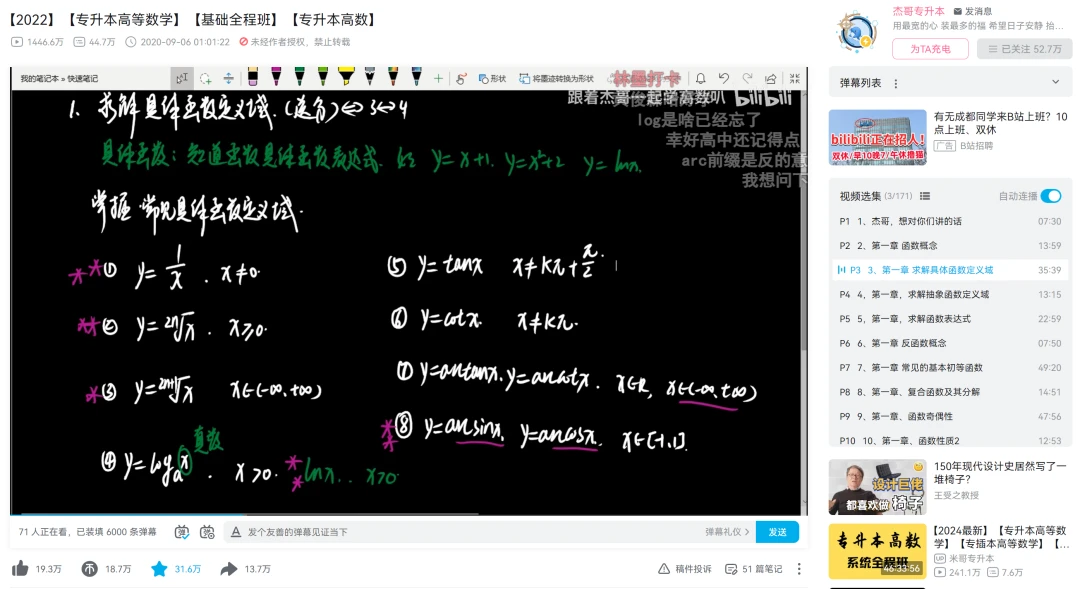 【2022】【专升本高等数学】【基础全程班】【专升本高数】
1446.6万 44.7万 2020-09-06 01:01:22 未经作者授权，禁止转载
杰哥专升本 发消息
用最宽的心 装最多的福 希望日子安静 抬...
为TA充电 已关注 52.7万
我的笔记本 » 快速笔记
形状 将墨迹转换为形状
林墨打卡
跟着杰哥一起学高数叭 bilibili
log是啥已经忘了
幸好高中还记得点
arc前缀是反的意
我想问下
1. 求解具体函数定义域. (选, 合) ⇔ 3 ⇔ 4
具体函数: 知道函数具体函数表达式. 如 y=x+1. y=x²+2 y=lnx.
掌握 常见具体函数定义域.
**① y=1/x . x≠0.
**② y=2n√x . x≥0.
*③ y=2n+1√x x∈(-∞, +∞)
真数
④ y=logₐx . x>0. ** lnx.. x>0.
⑤ y=tanx x≠kπ+π/2.
⑥ y=cotx. x≠kπ.
⑦ y=arctanx. y=arccotx. x∈R, x∈(-∞, +∞)
**⑧ y=arcsinx. y=arccosx. x∈[-1,1].
71 人正在看，已装填 6000 条弹幕 A 发个友善的弹幕见证当下 弹幕礼仪 > 发送
19.3万 18.7万 31.6万 13.7万 稿件投诉 51 篇笔记
弹幕列表
bilibili正在招人!
双休/早10晚7/午休撸猫
有无成都同学来B站上班？10点上班、双休
广告 B站招聘
视频选集 (3/171) 自动连播
P1 1、杰哥，想对你们讲的话 07:30
P2 2、第一章 函数概念 13:59
P3 3、第一章 求解具体函数定义域 35:39
P4 4，第一章，求解抽象函数定义域 13:15
P5 5、第一章，求解函数表达式 22:59
P6 6、第一章 反函数概念 07:50
P7 7、第一章 常见的基本初等函数 49:20
P8 8、第一章、复合函数及其分解 14:51
P9 9、第一章、函数奇偶性 47:56
P10 10、第一章、函数性质2 12:53
设计巨佬
都喜欢做 椅子
150年现代设计史居然写了一堆椅子？
王受之教授
专升本高数
系统全程班
46:33:56
【2024最新】【专升本高等数学】【专插本高等数学】【...
UP 米哥专升本
241.1万 7.6万